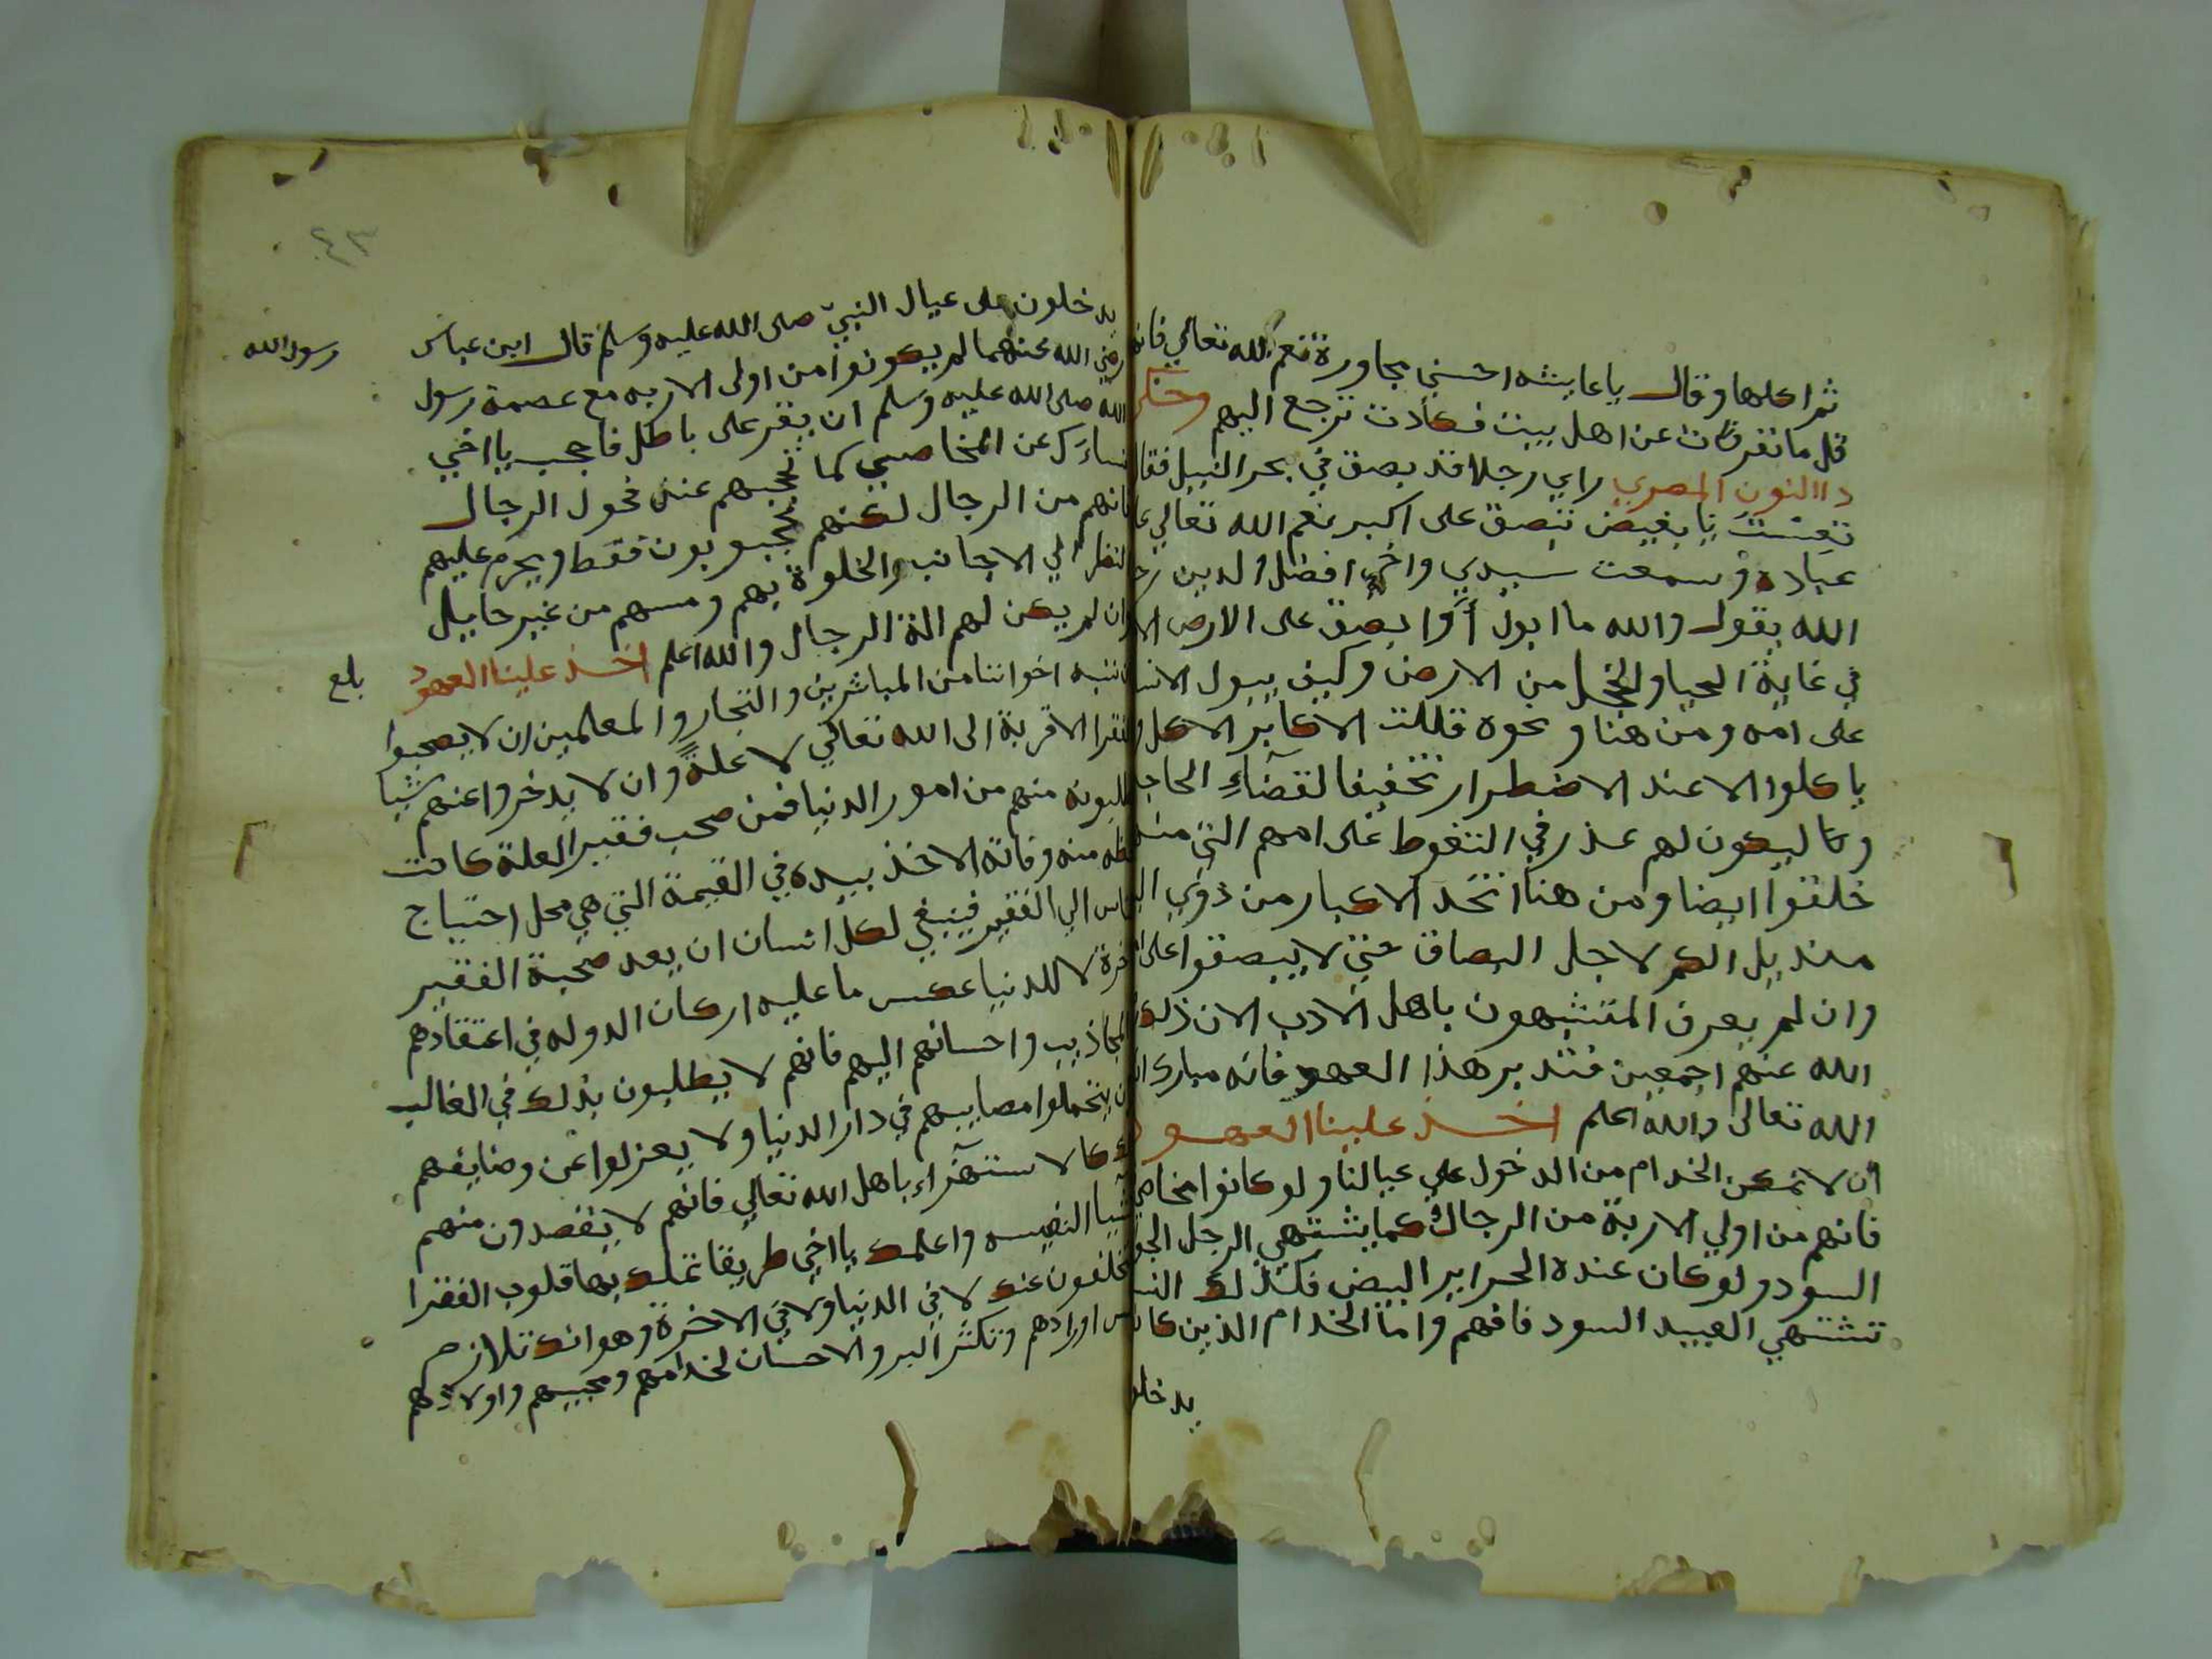 ثم اكلها وقال يا عايشه احسني مجاورة نعم الله تعالي فانها
قل ما نفرت عن اهل بيت فكادت ترجع اليهم وحكي
ذا النون المصري راي رجلا قد بصق في بحر النيل فقال
تعست يا بغيض تبصق على اكبر نعم الله تعالي على
عباده وسمعت سيدي واخي افضل الدين رحمه
الله يقول والله ما ابول أوا بصق على الارض الا
في غاية الحيا والخجل من الارض وكيف يبول الانسان
على امه ومن هنا ونحوه قللت الاكابر الاكل
ياكلوا الا عند الاضطرار تخفيفا لقضآء الحاجة
وكا ليكون لهم عذر في التغوط على امهم التي منها
خلقوا ايضا ومن هنا اتخذ الاكبار من ذوي
منديل الكم لاجل البصاق حتي لا يبصقوا على
وان لم يعرف المتشبهون باهل الادب الان ذلك
الله عنهم اجمعين فتدبر هذا العهد فانه مبارك
الله تعالى والله اعلم اخذ علينا العهود
ان لا نمكن الخدام من الدخول علي عيالنا ولو كانوا مخاصي
فانهم من اولي الاربة من الرجال كما يشتهي الرجل
السود ولو كان عنده الحراير البيض فكذلك النسا
تشتهي العبيد السود فافهم واما الخدام الذين كانوا
يدخلو
٤٣
يدخلون على عيال النبي صلى الله عليه وسلم قال ابن عباس
رسول الله
رضي الله عنهما لم يكونوا من اولى الاربه مع عصمة رسول
الله صلى الله عليه وسلم ان يقر على باطل فاحجب يا اخي
نساءك عن المخاصي كما تحجبهم عند فحول الرجال
فانهم من الرجال لكنهم مجبوبون فقط ويحرم عليهم
النظر الي الاجانب والخلوة بهم ومسهم من غير حايل
وان لم يكن لهم الة الرجال والله اعلم اخذ علينا العهود
بلغ
ان ننبه اخواننا من المباشرين والتجار والمعلمين ان لا يصحبوا
الفقرا الا قربة الى الله تعالي لا علة وان لا يدخروا عنهم شيا
يطلبونه منهم من امور الدنيا فمن صحب فقير العلة كانت
حظه منه وفاته الاخذ بيده في القيمة التي هي محل احتياج
الناس الي الفقير فينبغي لكل انسان ان يعد صحبة الفقير
للاخرة لا للدنيا عكس ما عليه اركان الدوله في اعتقادهم
المجاذيب واحسانهم اليهم فانهم لا يطلبون بذلك في الغالب
ان يتحملوا مصايبهم في دار الدنيا ولا يعزلوا عن وضايفهم
كالاستهزاء باهل الله تعالي فانهم لا يقصدون منهم
النفيسه واعلمك يا اخي طريقا تملك بها قلوب الفقرا
يتخلفون عنك لا في الدنيا ولا في الاخرة وهو انك تلازم
اورادهم وتكثر البر والاحسان لخدامهم ومحبيهم واولادهم